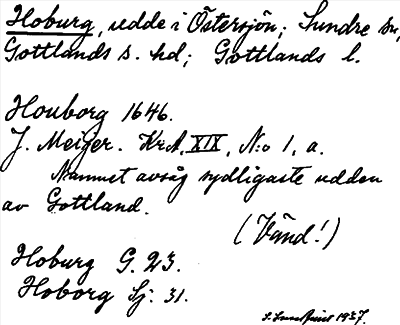 Hoburg, udde i Östersjön; Sundre sn,
Gottlands s. hd; Gottlands l.
Houborg 1646.
J. Meijer. KrA, XIX, N:o 1, a.
Namnet avsåg sydligaste udden
av Gottland.
(Vänd!)
Hoburg G. 23.
Hoborg Lj: 31.
1937.